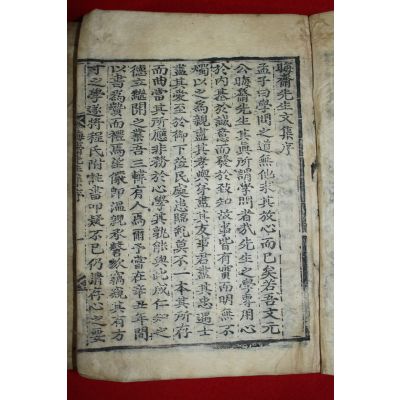 晦齋先生文集序
孟子曰學問之道無他求其放心而已矣若吾文元
公晦齋先生其眞所謂學問者哉先生之學專用心
於內基於誠意而發於致知故事皆有實而明無不
燭以之爲親盡其孝與弟盡其友事君盡其忠遇士
盡其愛至於御下莅民處患臨亂莫不一本其所存
而曲當其所應非務於心學其孰能與此成仁知之
德立繼開之業吾三韓有人焉爾予嘗在辛丑年間
以書爲贄而禮焉望儀卽溫親承謦欬竊觀其有方
寸之學遂將程氏附註當叩疑不已仍請存心之要
晦齋集序